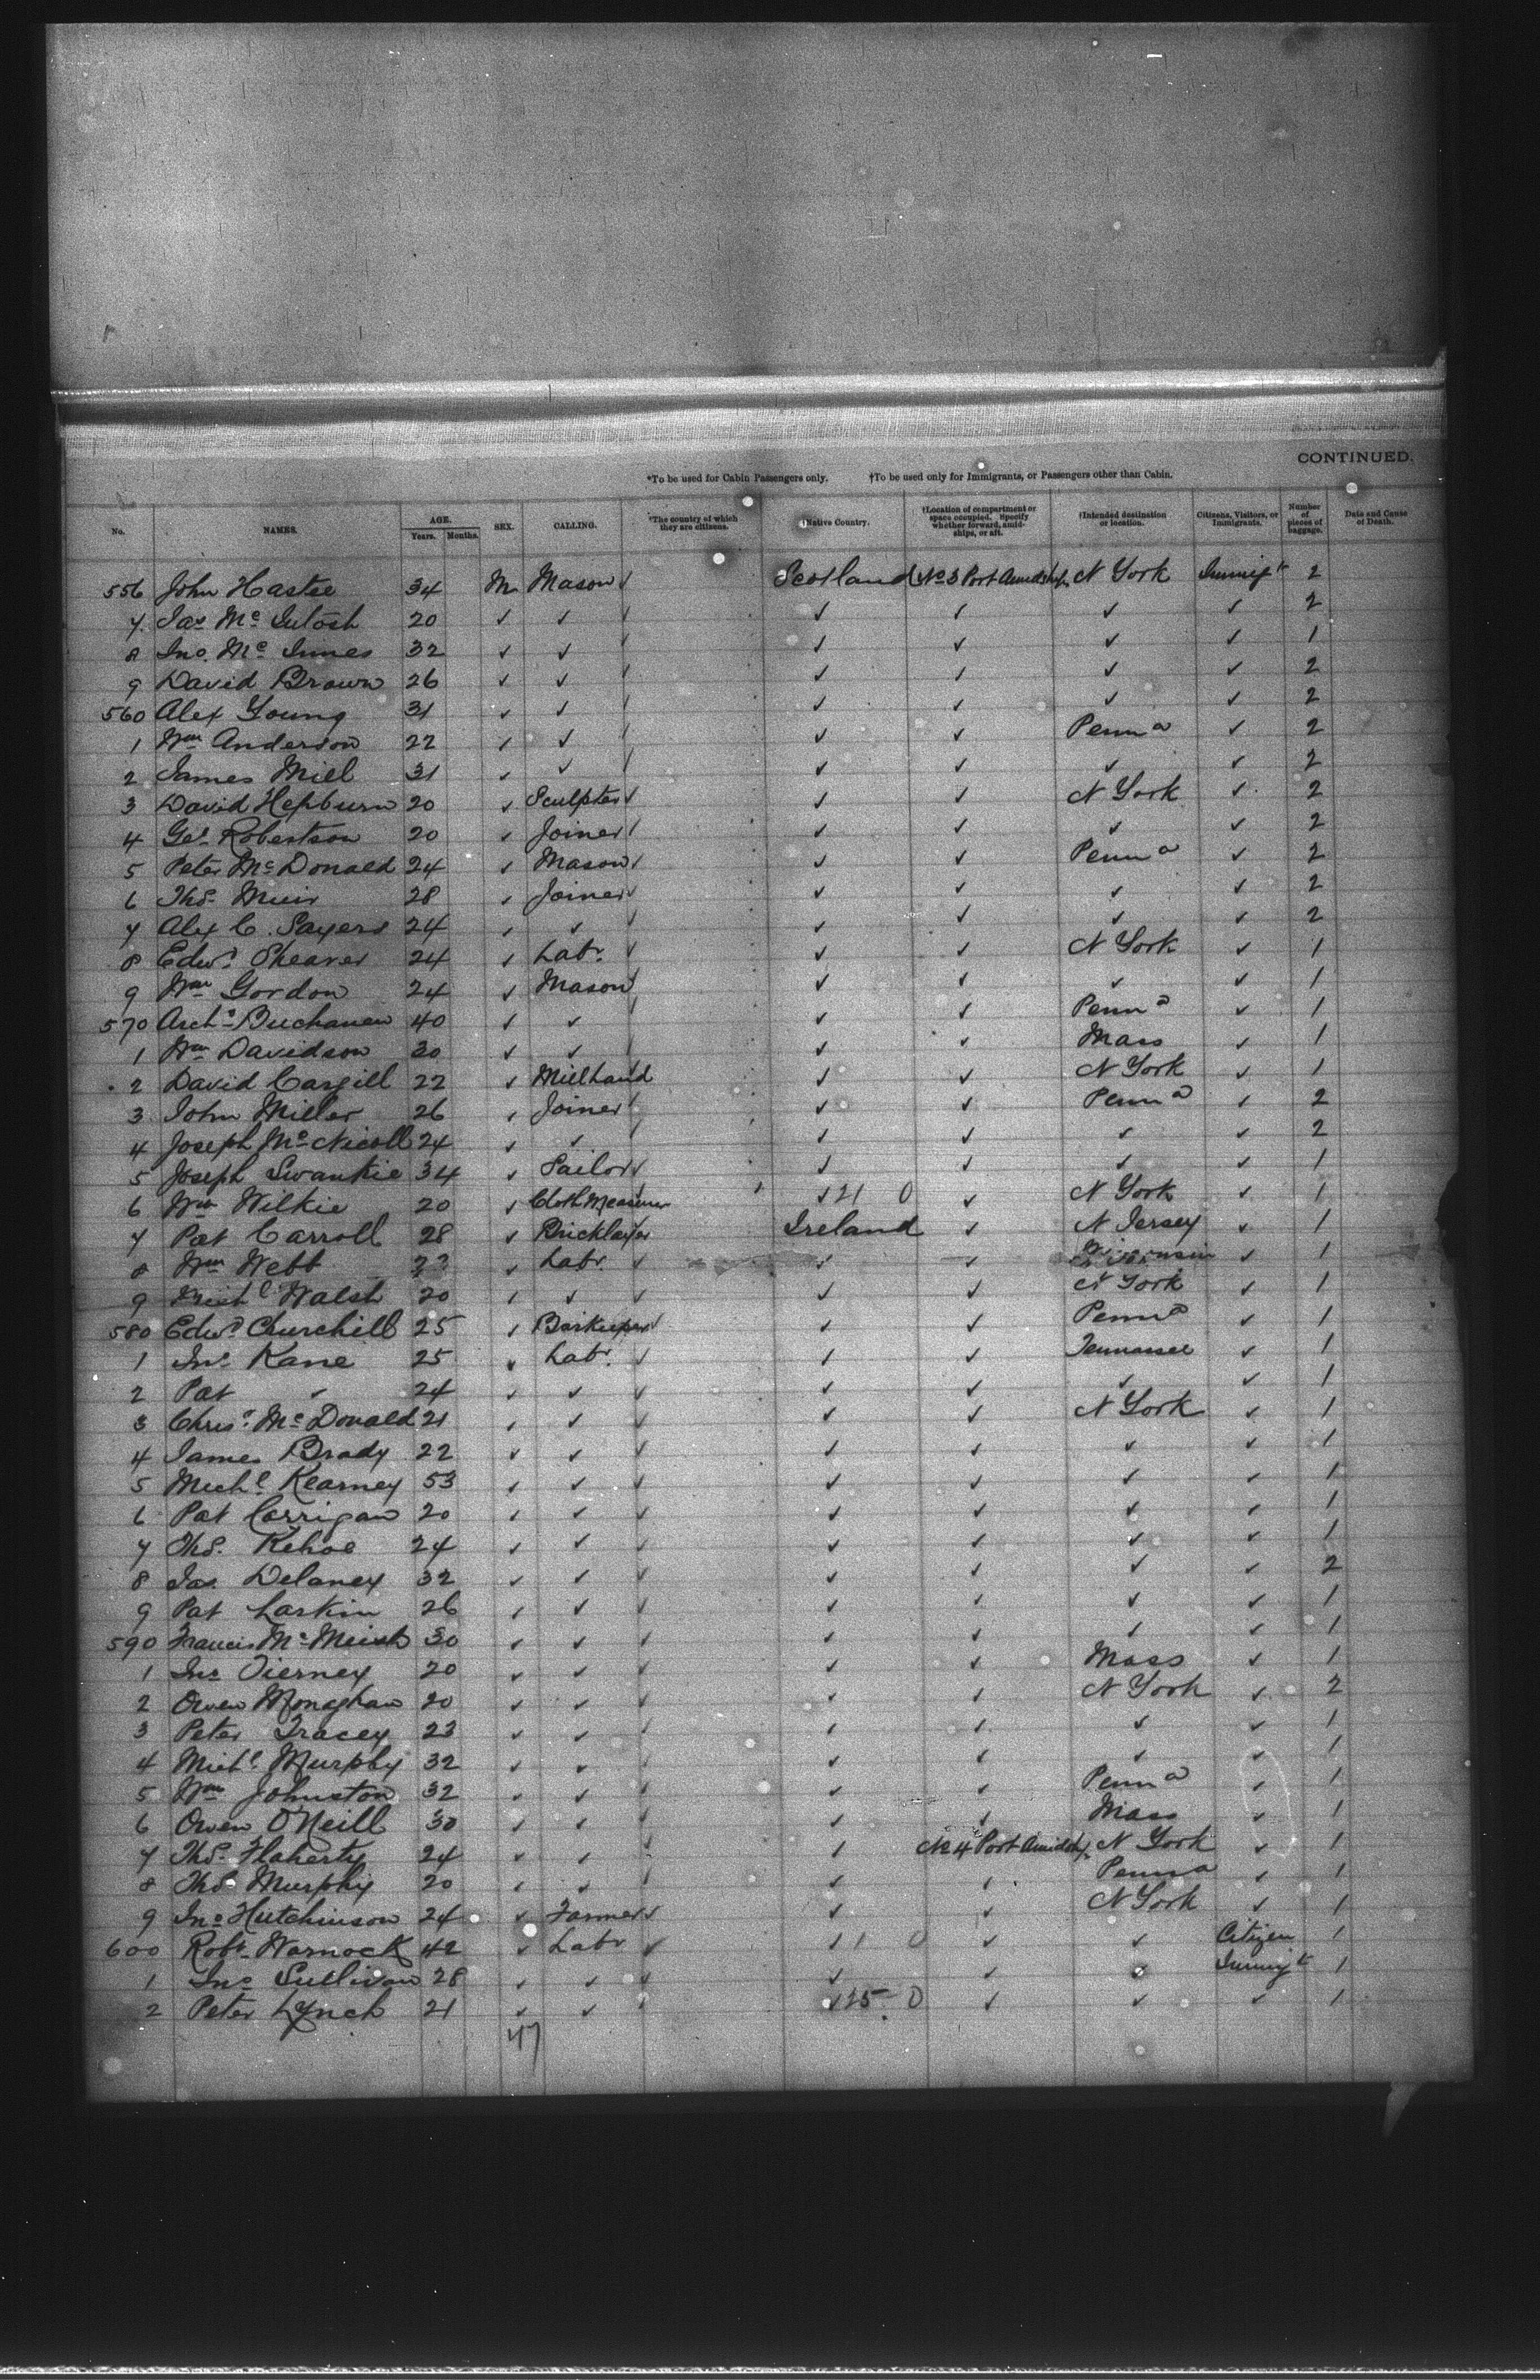 CONTINUED.
*To be used for Cabin Passengers only. †To be used only for Immigrants, or Passengers other than Cabin.
No. NAMES. AGE. Years. Months. SEX. CALLING. *The country of which they are citizens. †Native Country. †Location of compartment or space occupied. Specify whether forward, amidships, or aft. †Intended destination or location. Citizens, Visitors, or Immigrants. Number of pieces of baggage. Date and Cause of Death.
556 John Hastie 34 M Mason ✓ Scotland No 3 Port Amidships N York Immigt 2
7 Jas Mc Intosh 20 ✓ ✓ ✓ ✓ ✓ ✓ ✓ 2
8 Jno. Mc Innes 32 ✓ ✓ ✓ ✓ ✓ ✓ ✓ 1
9 David Brown 26 ✓ ✓ ✓ ✓ ✓ ✓ ✓ 2
560 Alex Young 31 ✓ ✓ ✓ ✓ ✓ ✓ ✓ 2
1 Wm Anderson 22 ✓ ✓ ✓ ✓ ✓ Penna ✓ 2
2 James Mill 31 ✓ ✓ ✓ ✓ ✓ ✓ ✓ 2
3 David Hepburn 20 ✓ Sculptor ✓ ✓ ✓ N York ✓ 2
4 Geo Robertson 20 ✓ Joiner ✓ ✓ ✓ ✓ ✓ 2
5 Peter Mc Donald 24 ✓ Mason ✓ ✓ ✓ Penna ✓ 2
6 Thos Muir 28 ✓ Joiner ✓ ✓ ✓ ✓ ✓ 2
7 Alex C. Sayers 24 ✓ ✓ ✓ ✓ ✓ ✓ ✓ 2
8 Edwd Shearer 24 ✓ Labr. ✓ ✓ ✓ N York ✓ 1
9 Wm Gordon 24 ✓ Mason ✓ ✓ ✓ ✓ ✓ 1
570 Archd Buchanan 40 ✓ ✓ ✓ ✓ ✓ Penna ✓ 1
1 Wm Davidson 30 ✓ ✓ ✓ ✓ ✓ Mass ✓ 1
2 David Cargill 22 ✓ Millhand ✓ ✓ N York ✓ 1
3 John Miller 26 ✓ Joiner ✓ ✓ ✓ Penna ✓ 2
4 Joseph Mc Nicoll 24 ✓ ✓ ✓ ✓ ✓ ✓ ✓ 2
5 Joseph Swankie 34 ✓ Sailor ✓ ✓ ✓ ✓ ✓ 1
6 Wm Wilkie 20 ✓ Cloth Measurer ✓ 21 0 ✓ N York ✓ 1
7 Pat Carroll 28 ✓ Bricklayer Ireland ✓ N Jersey ✓ 1
8 Wm Webb ✓ Labr ✓ ✓ ✓ Wisconsin ✓ 1
9 Michl Walsh 20 ✓ ✓ ✓ ✓ ✓ N York ✓ 1
580 Edwd Churchill 25 ✓ Barkeeper ✓ ✓ ✓ Penna ✓ 1
1 Jno Kane 25 ✓ Labr. ✓ ✓ ✓ Tennessee ✓ 1
2 Pat ✓ 24 ✓ ✓ ✓ ✓ ✓ ✓ ✓ 1
3 Chrisr Mc Donald 21 ✓ ✓ ✓ ✓ ✓ N York ✓ 1
4 James Brady 22 ✓ ✓ ✓ ✓ ✓ ✓ ✓ 1
5 Michl Kearney 53 ✓ ✓ ✓ ✓ ✓ ✓ ✓ 1
6 Pat Corrigan 20 ✓ ✓ ✓ ✓ ✓ ✓ ✓ 1
7 Thos. Kehoe 24 ✓ ✓ ✓ ✓ ✓ ✓ ✓ 1
8 Jas. Delaney 32 ✓ ✓ ✓ ✓ ✓ ✓ ✓ 2
9 Pat Larkin 26 ✓ ✓ ✓ ✓ ✓ ✓ ✓ 1
590 Francis Mc 30 ✓ ✓ ✓ ✓ ✓ ✓ ✓ 1
1 Jno Tierney 20 ✓ ✓ ✓ ✓ ✓ Mass ✓ 1
2 Owen Monaghan 20 ✓ ✓ ✓ ✓ ✓ N York ✓ 2
3 Peter Tracey 23 ✓ ✓ ✓ ✓ ✓ ✓ ✓ 1
4 Michl Murphy 32 ✓ ✓ ✓ ✓ ✓ ✓ ✓ 1
5 Wm Johnston 32 ✓ ✓ ✓ ✓ ✓ Penna ✓ 1
6 Owen O'Neill 30 ✓ ✓ ✓ ✓ ✓ Mass ✓ 1
7 Thos. Flaherty 24 ✓ ✓ ✓ ✓ No 4 Port Amidships N York ✓ 1
8 Thos Murphy 20 ✓ ✓ ✓ ✓ ✓ Penna ✓ 1
9 Jno Hutchinson 24 ✓ Farmer ✓ ✓ ✓ N York ✓ 1
600 Robt Warnock 42 ✓ Labr ✓ ✓ 1 0 ✓ ✓ Citizen 1
1 Jno Sullivan 28 ✓ ✓ ✓ ✓ ✓ ✓ Immigt 1
2 Peter Lynch 21 ✓ ✓ ✓ ✓ 25 0 ✓ ✓ ✓ 1
47